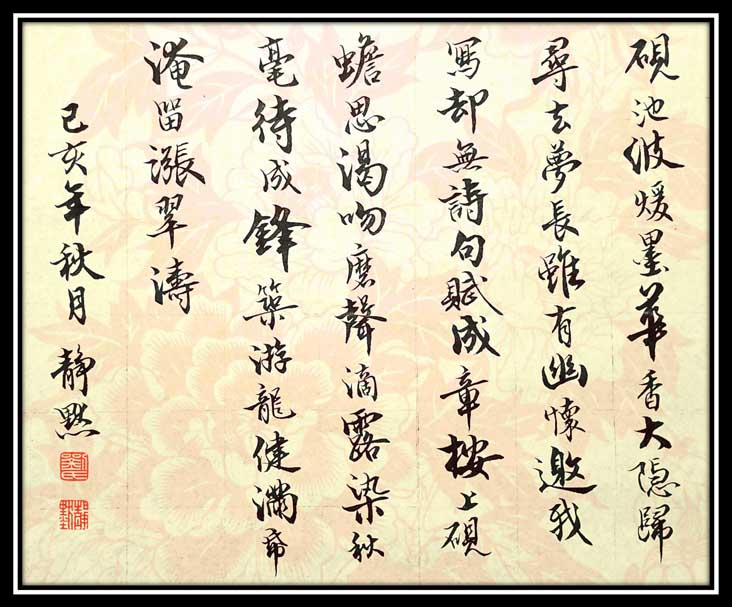 硯池波煖墨華香大隐歸
尋去夢長雖有幽懷邀我
寫却無詩句賦成章桉上硯
蟾思渴吻磨聲滴露染秋
毫待成鋒築游龍健滿帋
淹留漲翠濤
己亥年秋月 靜默